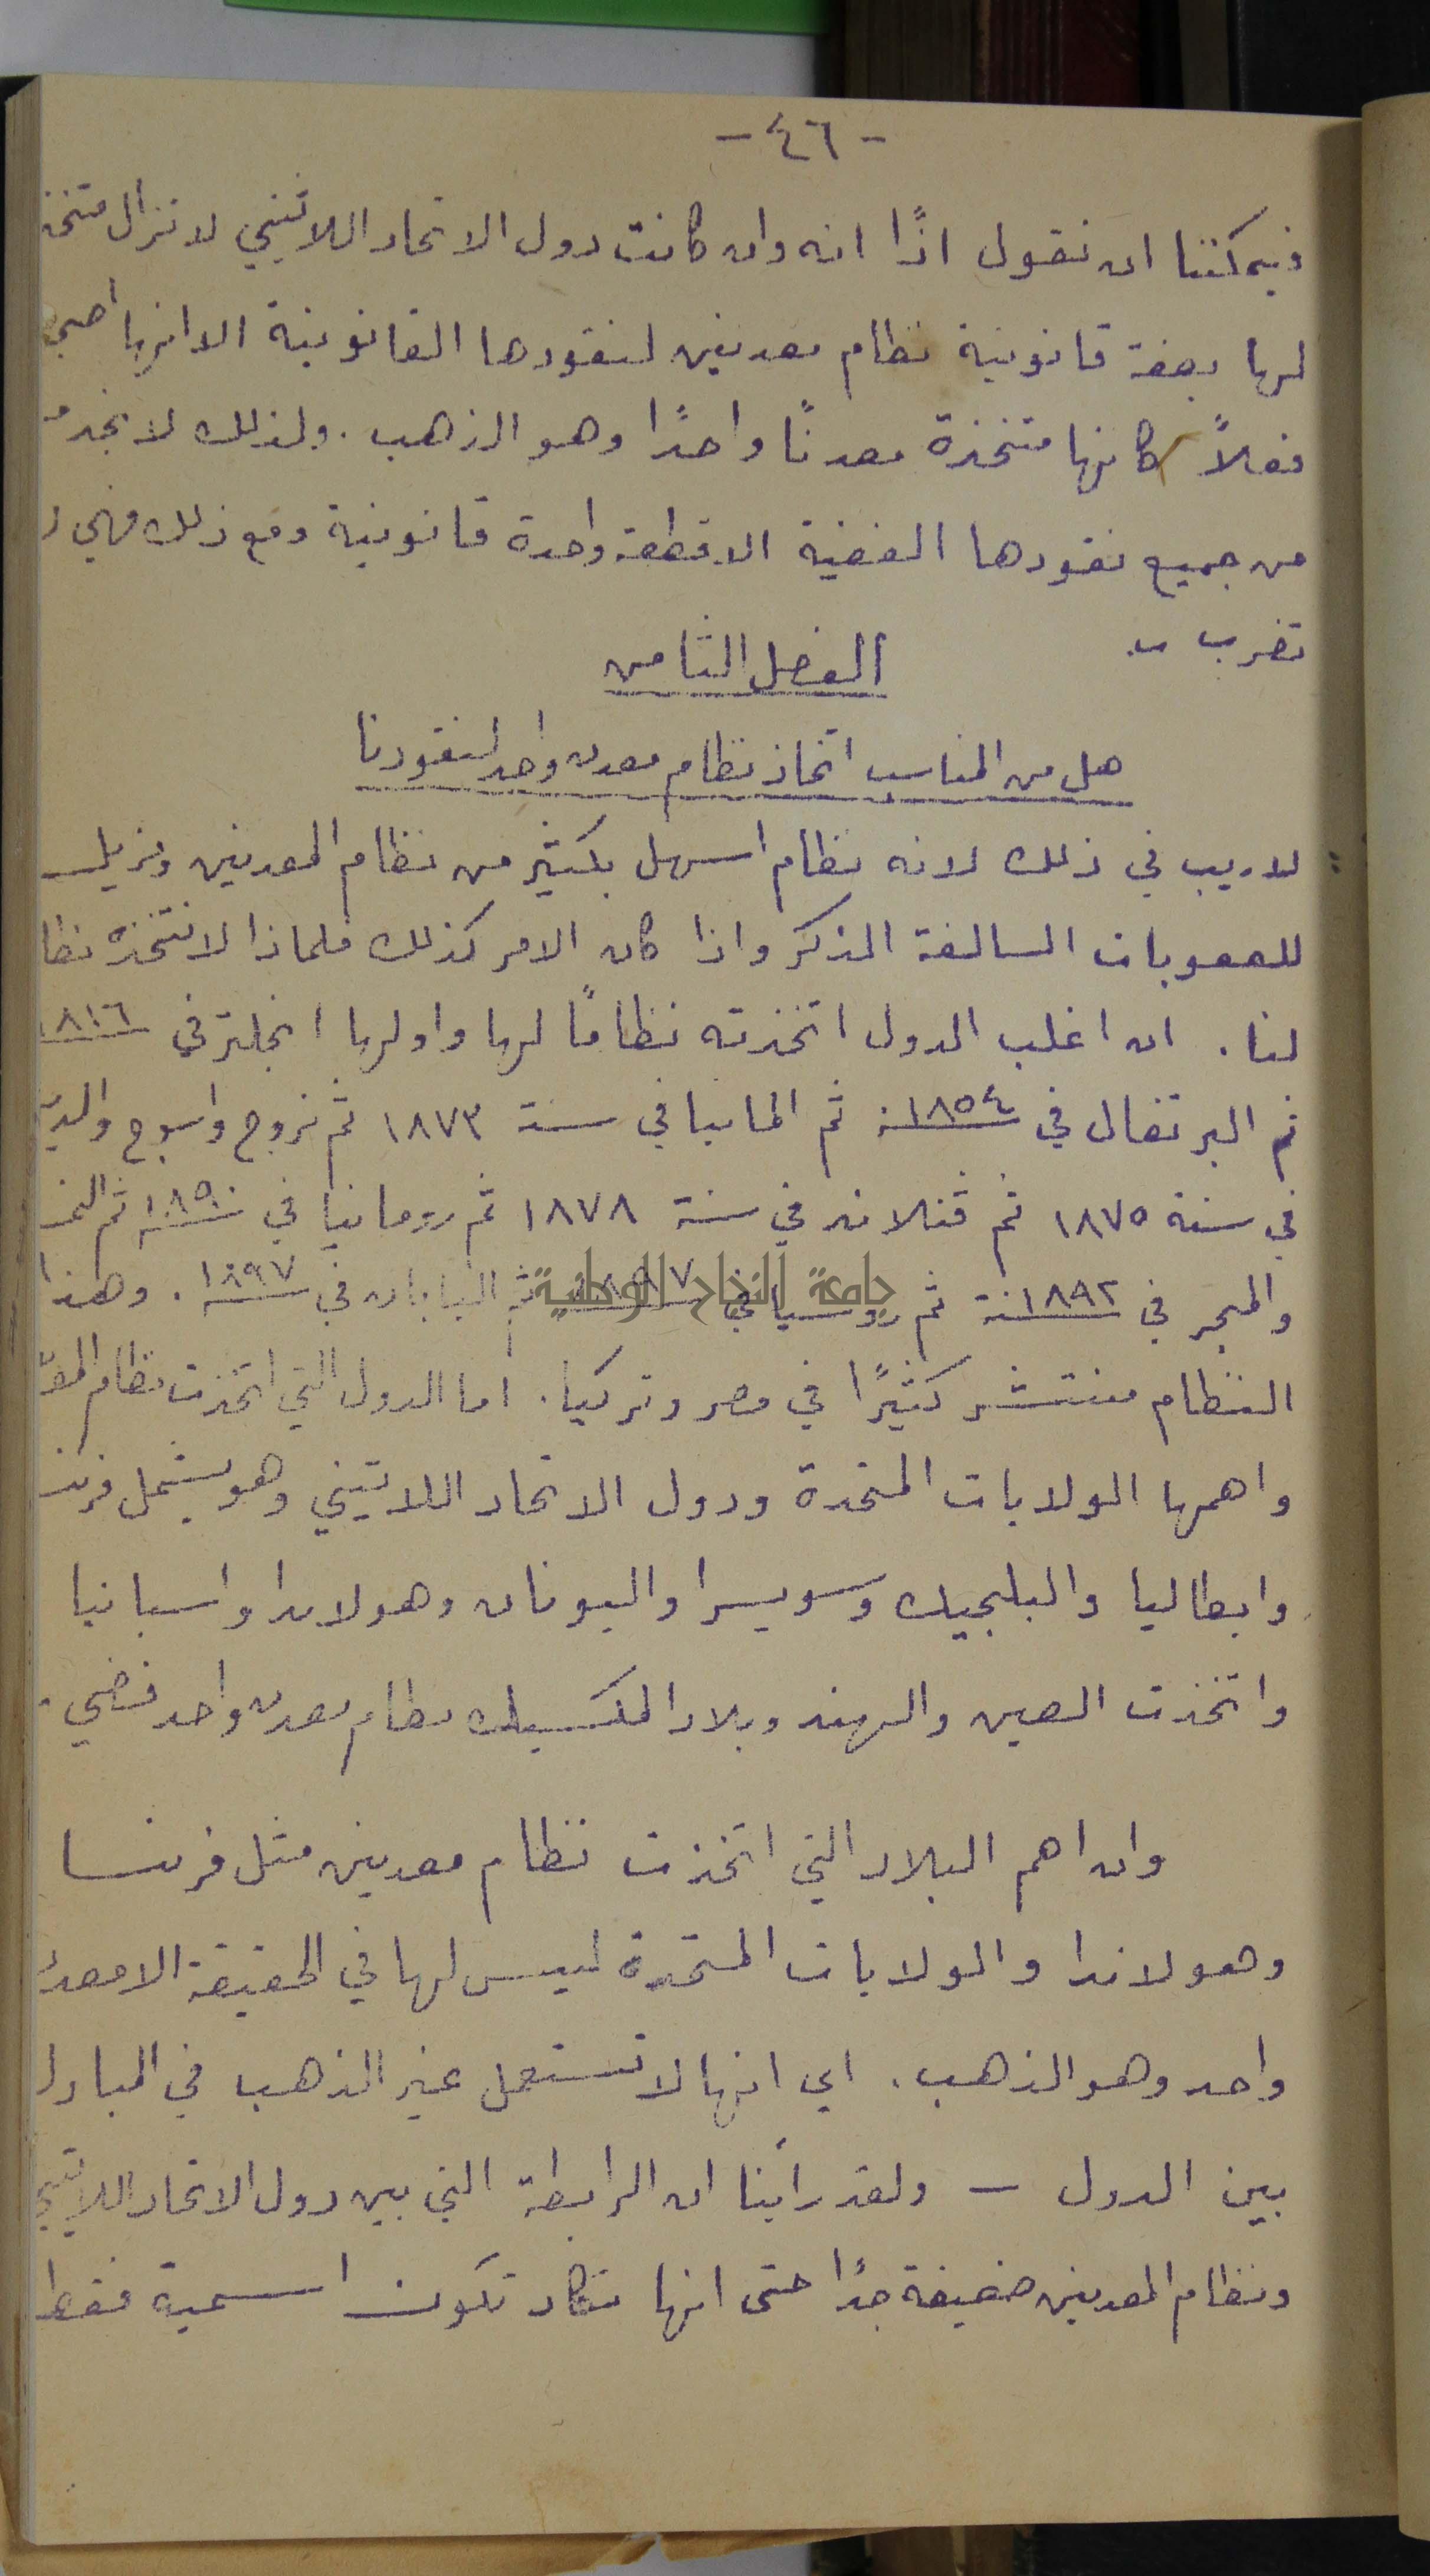 - ٤٦ -
فيمكننا ان نقول اذًا انه وان كانت دول الاتحاد اللاتيني لا تزال
لها بصفة قانونية نظام معدنين لنقودها القانونية الا انها
فعلاً كانها متخذة معدنًا واحدًا وهو الذهب . ولذلك لا
من جميع نقودها الفضية الا قطعة واحدة قانونية ومع ذلك فهي
تضرب ..
الفصل الثامن
هل من المناسب اتخاذ نظام معدن واحد لنقودنا
لا ريب في ذلك لانه نظام اسهل بكثير من نظام المعدنين ومزيل
للصعوبات السالفة الذكر واذا كان الامر كذلك فلماذا لا نتخذه
لنا . ان اغلب الدول اتخذته نظامًا لها واولها انجلتر في ١٨١٦
ثم البرتغال في ١٨٥٤ـنة ثم المانيا في سنة ١٨٧٣ ثم نروج واسوج
في سنة ١٨٧٥ ثم فنلاند في سنة ١٨٧٨ ثم رومانيا في ١٨٩٠ ثم
والمجر في ١٨٩٢ـنة ثم روسيا في ثم اليابان في ١٨٩٧ . وهذا
جامعة النجاح الوطنية
النظام منتشر كثيرًا في مصر وتركيا . اما الدول التي اتخذت نظام
واهمها الولايات المتحدة ودول الاتحاد اللاتيني وهو يشمل
وايطاليا والبلجيك وسويسرا واليونان وهولاندا واسبانيا
واتخذت الصين والهند وبلاد المكسيك نظام معدن واحد فضي .
وان اهم البلاد التي اتخذت نظام معدنين مثل فرنسا
وهولاندا والولايات المتحدة ليس لها في الحقيقة الا
واحد وهو الذهب . اي انها لا تستعمل غير الذهب في
بين الدول - ولقد رأينا ان الرابطة التي بين دول الاتحاد
ونظام المعدنين ضعيفة جدًا حتى انها تكاد تكون اسمية فقط